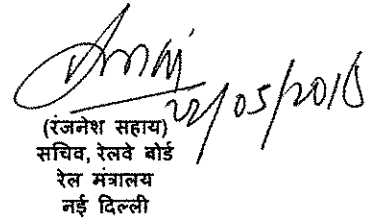 22/05/2018
(रंजनेश सहाय)
सचिव, रेलवे बोर्ड
रेल मंत्रालय
नई दिल्ली